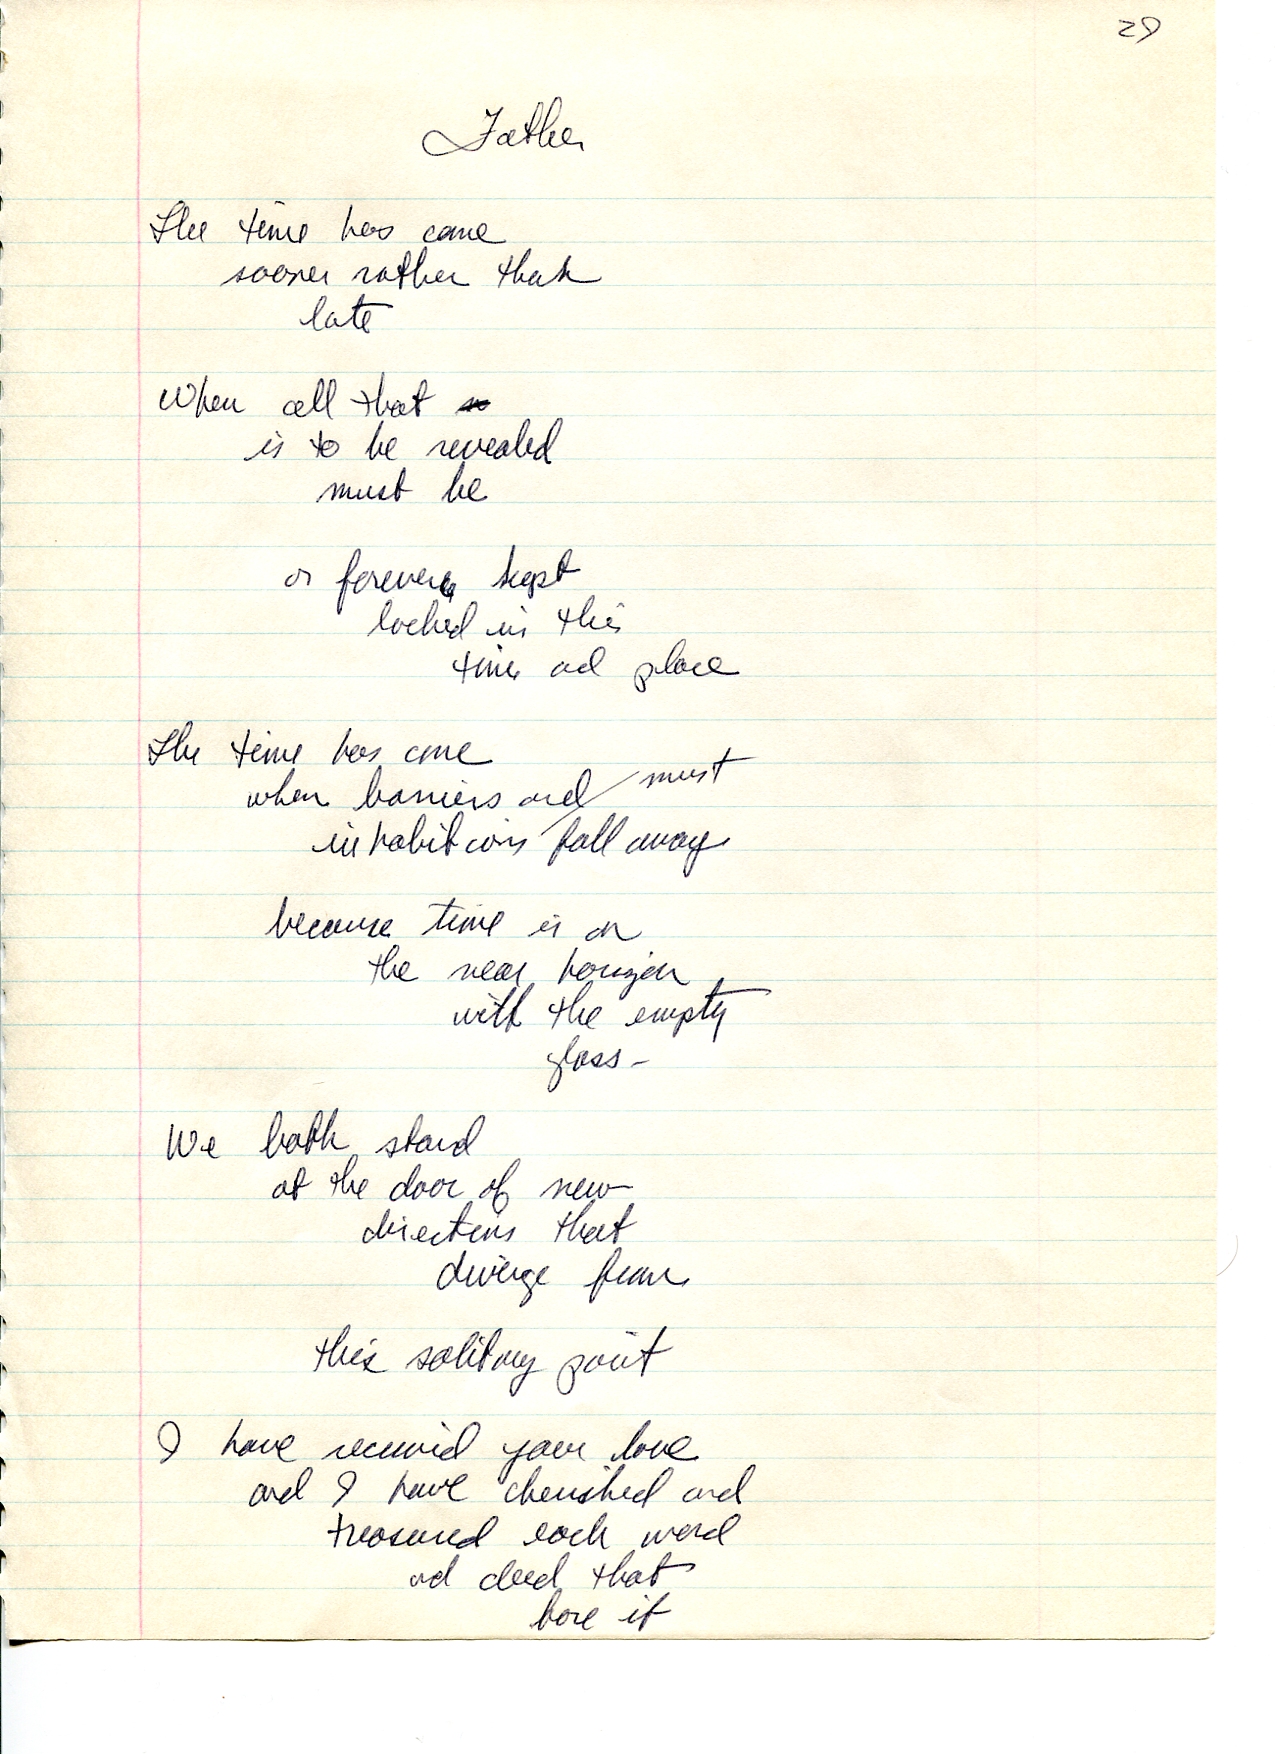 29
Father
The time has come
sooner rather than
late
When all that
is to be revealed
must be
or forever kept
locked in this
time and place
The time has come
when barriers and must
inhabitions fall away
because time is on
the near horizon
with the empty
glass -
We both stand
at the door of new
directions that
diverge from
this solitary point
I have received your love
and I have cherished and
treasured each word
and deed that
bore it